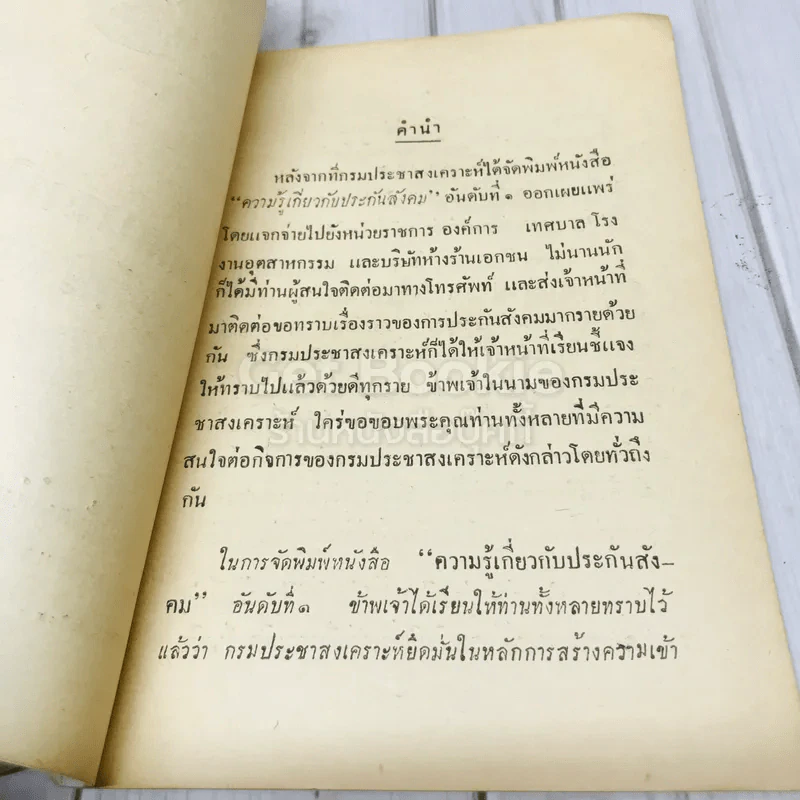 คำนำ
หลังจากที่กรมประชาสงเคราะห์ได้จัดพิมพ์หนังสือ
"ความรู้เกี่ยวกับประกันสังคม" อันดับที่ ๑ ออกเผยแพร่
โดยแจกจ่ายไปยังหน่วยราชการ องค์การ เทศบาล โรง
งานอุตสาหกรรม และบริษัทห้างร้านเอกชน ไม่นานนัก
ก็ได้มีท่านผู้สนใจติดต่อมาทางโทรศัพท์ และส่งเจ้าหน้าที่
มาติดต่อขอทราบเรื่องราวของการประกันสังคมมากรายด้วย
กัน ซึ่งกรมประชาสงเคราะห์ก็ได้ให้เจ้าหน้าที่เรียนชี้แจง
ให้ทราบไปแล้วด้วยดีทุกราย ข้าพเจ้าในนามของกรมประ
ชาสงเคราะห์ ใคร่ขอขอบพระคุณท่านทั้งหลายที่มีความ
สนใจต่อกิจการของกรมประชาสงเคราะห์ดังกล่าวโดยทั่วถึง
กัน
ในการจัดพิมพ์หนังสือ "ความรู้เกี่ยวกับประกันสัง–
คม" อันดับที่ ๑ ข้าพเจ้าได้เรียนให้ท่านทั้งหลายทราบไว้
แล้วว่า กรมประชาสงเคราะห์ยึดมั่นในหลักการสร้างความเข้า